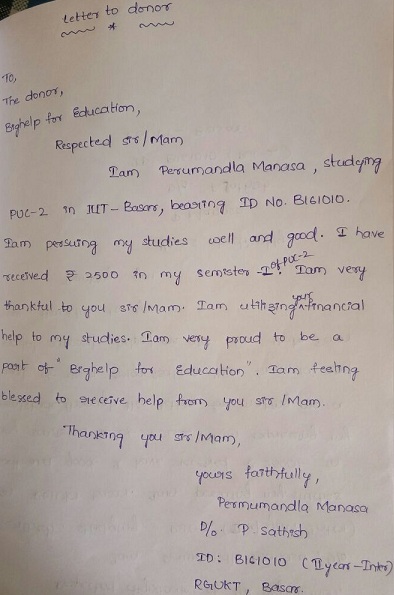 Letter to donor
To,
The donor,
Bighelp for Education,
Respected sir/Mam
Iam Perumandla Manasa, studying
PUC-2 in IIIT-Basar, bearing ID NO. B161010.
Iam persuing my studies well and good. I have
received ₹ 2500 in my semester-I of PUC-2. Iam very
thankful to you sir/Mam. Iam utilizing your financial
help to my studies. Iam very proud to be a
part of "Bighelp for Education". Iam feeling
blessed to receive help from you sir/Mam.
Thanking you sir/Mam,
yours faithfully,
Permumandla Manasa
D/o. P Sathish
ID: B161010 (II year-Inter)
RGUKT, Basar.